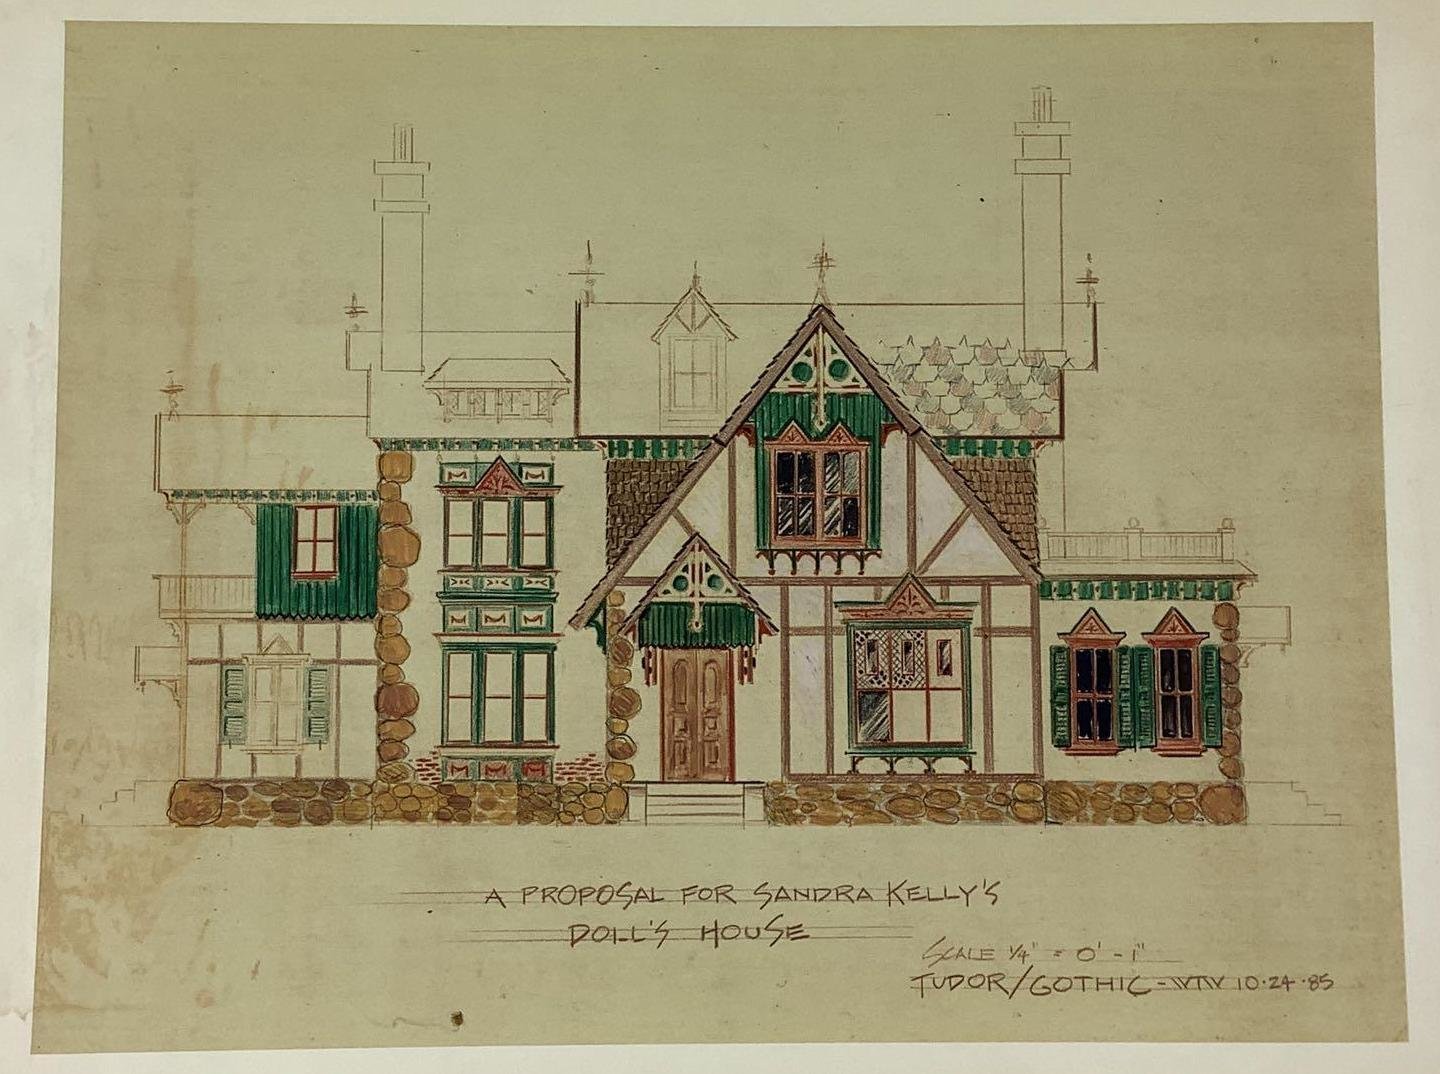 A PROPOSAL FOR SANDRA KELLY'S
DOLL'S HOUSE
SCALE 1/4" = 0' - 1"
TUDOR/GOTHIC - WTW 10·24·85